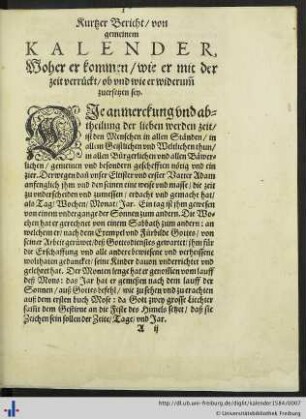 Kurtzer Bericht / von
gemeinem
KALENDER,
Woher er kommen / wie er mit der
zeit verrückt / vnd wie er widerum̃
zuersetzen sey.
DIe anmerckung vnd ab-
theilung der lieben werden zeit /
ist den Menschen in allen Ständen / in
allem Geistlichen vnd Weltlichen thun /
in allen Bürgerlichen vnd allen Bäwer-
lichen / gemeinen vnd besondern geschefften nötig vnd ein
zier. Derwegen daß vnser Eltester vnd erster Vatter Adam
anfenglich ihm vnd den seinen eine weise vnd masse / die zeit
zu vnderscheiden vnd zumessen / erdacht vnd gemacht hat /
als Tag / Wochen / Monat / Jar. Ein tag ist ihm gewesen
von einem vndergange der Sonnen zum andern. Die Wo-
chen hat er gerechnet von einem Sabbath zum andern: an
welchem er / nach dem Exempel vnd Fürbilde Gottes / von
seiner Arbeit gerüwet / deß Gottesdienstes gewartet / ihm für
die Erschaffung vnd alle andere bewiesene vnd verheissene
wolthaten gedanckt / seine Kinder dauon vnderrichtet vnd
gelehret hat. Der Monten lenge hat er genom̃en vom lauff
deß Mons: das Jar hat er gemessen nach dem lauff der
Sonnen / auß Gottes befehl / wie zu sehen vnd zu erachten
auß dem ersten buch Mose: da Gott zwey grosse Liechter
sampt dem Gestirne an die Feste des Himels setzet / daß sie
Zeichen sein sollen der Zeite / Tage / vnd Jar.
A ij
http://dl.ub.uni-freiburg.de/diglit/kalender1584/0007
© Universitätsbibliothek Freiburg